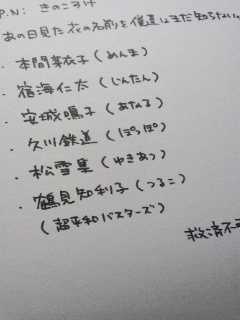 P.N: きのこすけ
あの日見た花の名前を僕達はまだ知らない
・本間芽衣子(めんま)
・宿海仁太(じんたん)
・安城鳴子(あなる)
・久川鉄道(ぽっぽ)
・松雪集(ゆきあつ)
・鶴見知利子(つるこ)
(超平和バスターズ)
救済不可